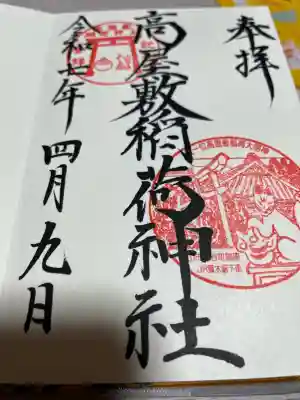 奉拝
高屋敷稲荷神社
令和七年 四月九日